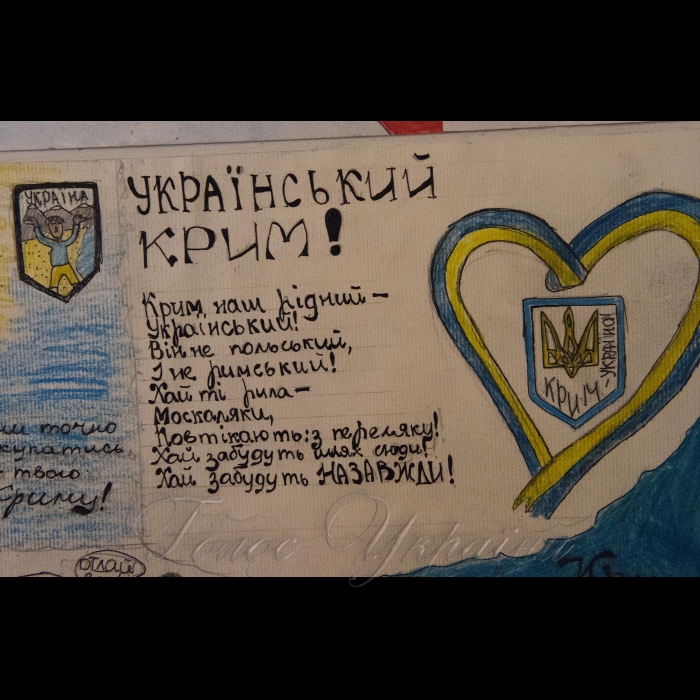 УКРАЇНА
УКРАЇНСЬКИЙ
КРИМ!
Крим, наш рідний –
Український!
Він не польський,
І не римський!
Хай ті рила –
Москаляки,
Повтікають із переляку!
Хай забудуть шлях сюди!
Хай забудуть НАЗАВЖДИ!
КРИМ - УКРАЇНО!
точно
купатись
твого
Криму!
Голос України